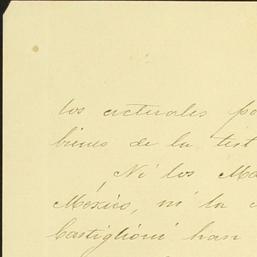 los actuales po
bienes de la test
Ni los Ma
México, ni la
Castiglioni han